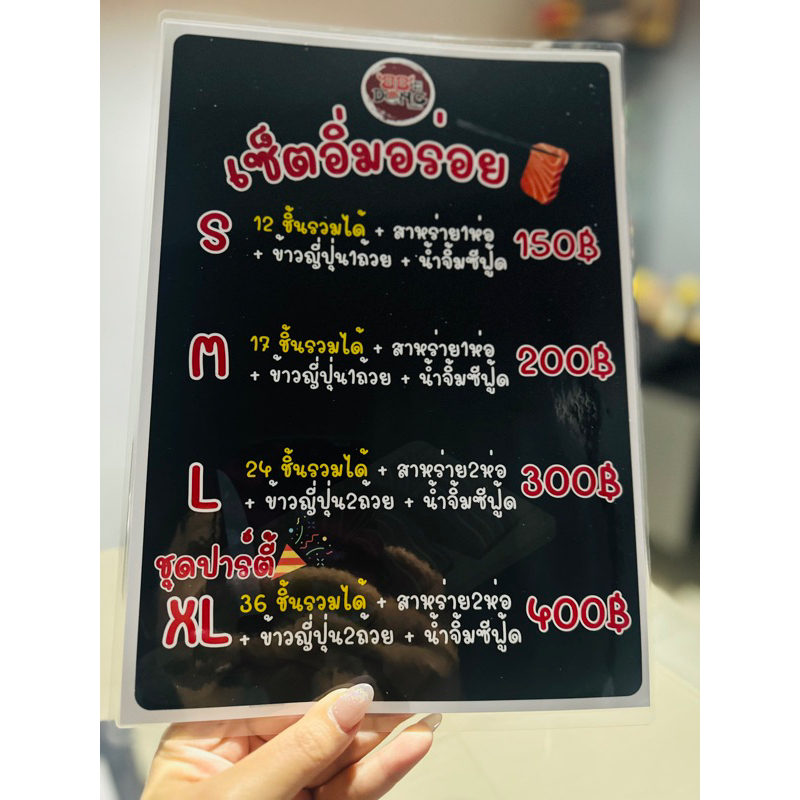 DONG
เซ็ตอิ่มอร่อย
S 12 ชิ้นรวมได้ + สาหร่าย1ห่อ 150฿
+ ข้าวญี่ปุ่น1ถ้วย + น้ำจิ้มซีฟู้ด
M 17 ชิ้นรวมได้ + สาหร่าย1ห่อ 200฿
+ ข้าวญี่ปุ่น1ถ้วย + น้ำจิ้มซีฟู้ด
L 24 ชิ้นรวมได้ + สาหร่าย2ห่อ 300฿
+ ข้าวญี่ปุ่น2ถ้วย + น้ำจิ้มซีฟู้ด
ชุดปาร์ตี้
XL 36 ชิ้นรวมได้ + สาหร่าย2ห่อ 400฿
+ ข้าวญี่ปุ่น2ถ้วย + น้ำจิ้มซีฟู้ด